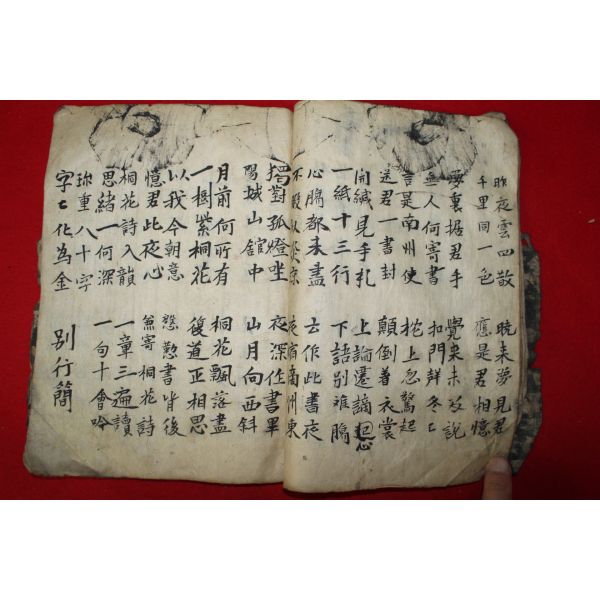 昨夜雲四散 晩来夢見君
千里同一色 應是君相憶
夢裏握君手 覺来未及説
無人何寄書 扣門鮮冬〻
言是南州使 枕上忽驚起
送君一書封 顛倒着衣裳
開緘見手札 上論遷謫心
一紙十三行 下語別難膓
心膓都未盡 云作此書夜
不暇 涼 夜宿南州東
獨對孤燈坐 夜深作書畢
陽城山舘中 山月向西斜
月前何所有 桐花飄落盡
一樹紫桐花 復道正相思
以我今朝意 慇懃書背後
憶君此夜心 兼寄桐花詩
桐花詩入韻 一章三遍讀
思緒一何深 一句十會吟
珎重八十字
字〻化為金 別行簡